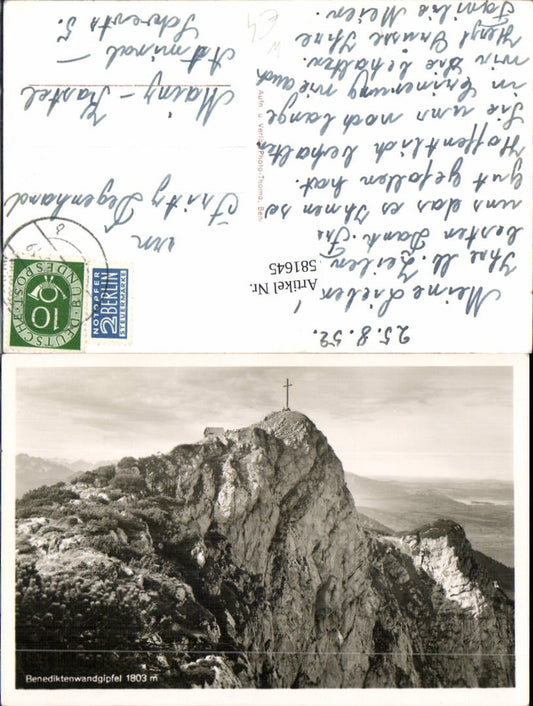 25.8.52.
Meine Lieben
Ihre lb. Zeilen
besten Dank. Fr
uns das es Ihnen so
gut gefallen hat.
Hoffentlich behalten
Sie uns noch lange
in Erinnerung wie auch
wir Sie behalten.
Herzl Grüsse Ihre
Familie Meier.
Aufn. u. Verlag Photo-Thoma, Ben
Artikel Nr.
581645
an
Fritz Degenhard
Mainz-Kastel
Admiral-
Scheerstr 5.
DEUTSCHE BUNDESPOST
10
NOTOPFER
2 BERLIN
STEUERMARKE
Benediktenwandgipfel 1803 m